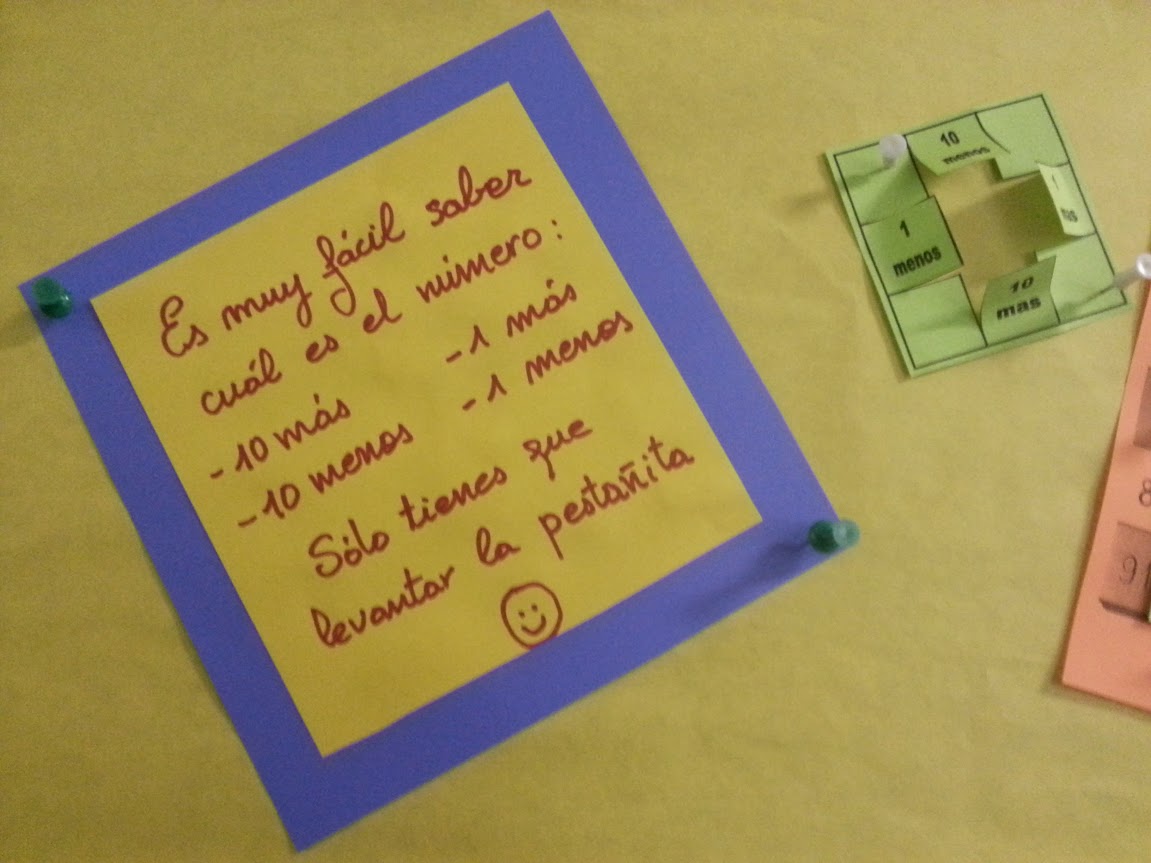 Es muy fácil saber
cuál es el número:
- 10 más - 1 más
- 10 menos - 1 menos
Sólo tienes que
levantar la pestañita
10
menos
1
menos
10
mas
8
9